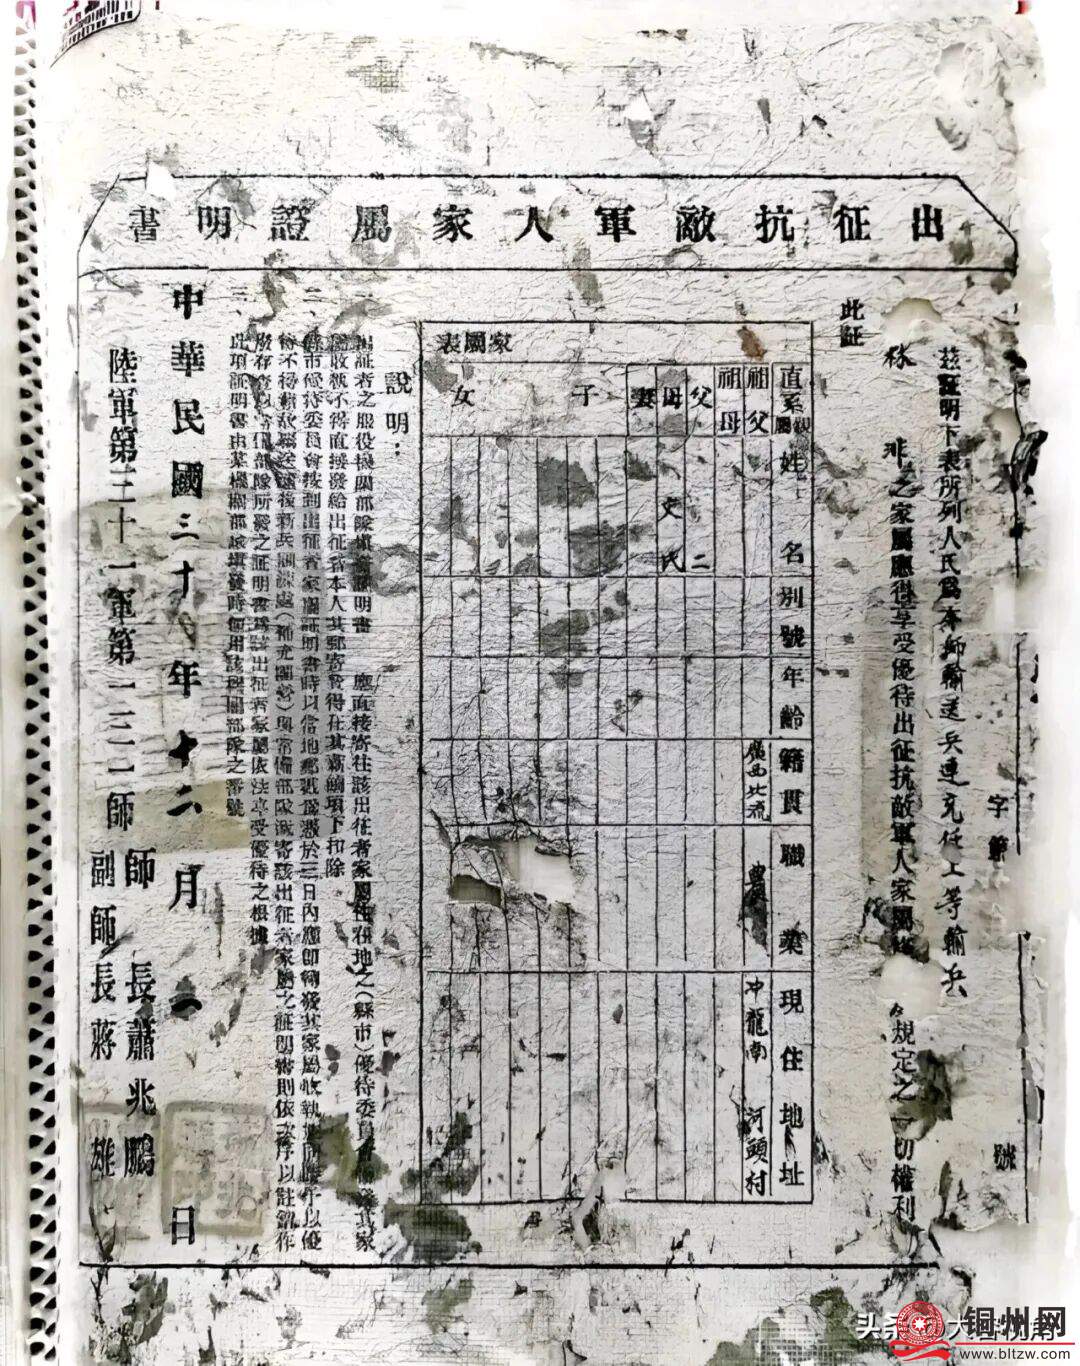 出征抗敵軍人家屬證明書
字第
號
茲証明下表所列人民爲本師輸送兵連充任上等輸兵
林 非之家屬應得享受優待出征抗敵軍人家屬 規定之一切權利
此証
家屬表
直系親屬 姓名 別號 年齡 籍貫 職業 現住地址
祖父 廣西北流 農 冲龍南 河頭村
祖母
父 二
母 史氏
妻
子
女
說明：
証者之服役機關部隊填 證明書 應直接寄往該出征者家屬住在地之（縣市）優待委員會 其家
收執不得直接發給出征者本人其郵寄費得在其薪餉項下扣除
二、縣市優待委員會接到出征者家屬証明書時以當地郵戳爲憑於三日內應即轉發其家屬收執 以優
待不得 後新兵團 處（補充團營）與常備部隊 寄該出征者家屬之証明書則依次序以註銷作
廢存查以 部隊所發之証明書爲該出征者家屬依法享受優待之根據
三、此項証明書由某機關部隊填發時 用該機關部隊之番號
中華民國三十 年十二月 日
陸軍第三十一軍第一三一師 師長蕭兆鵬
副師長蔣雄
铜州网
www.bltzw.com